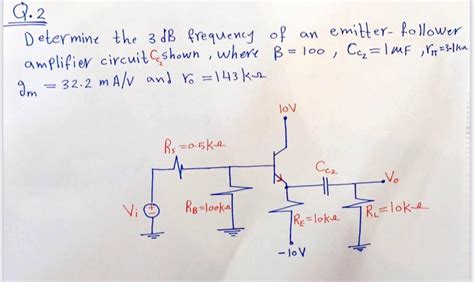 Q.2
Determine the 3 dB frequency of an emitter-follower
amplifier circuit Cc2 shown, where β = 100, Cc2 = 1 μF, rπ=3.1kΩ
gm = 32.2 mA/V and ro = 143 k-Ω
10V
Rs =0.5k-Ω
Cc2
Vo
Vi
RB=100kΩ
RE=10k-Ω
RL=10k-Ω
-10V